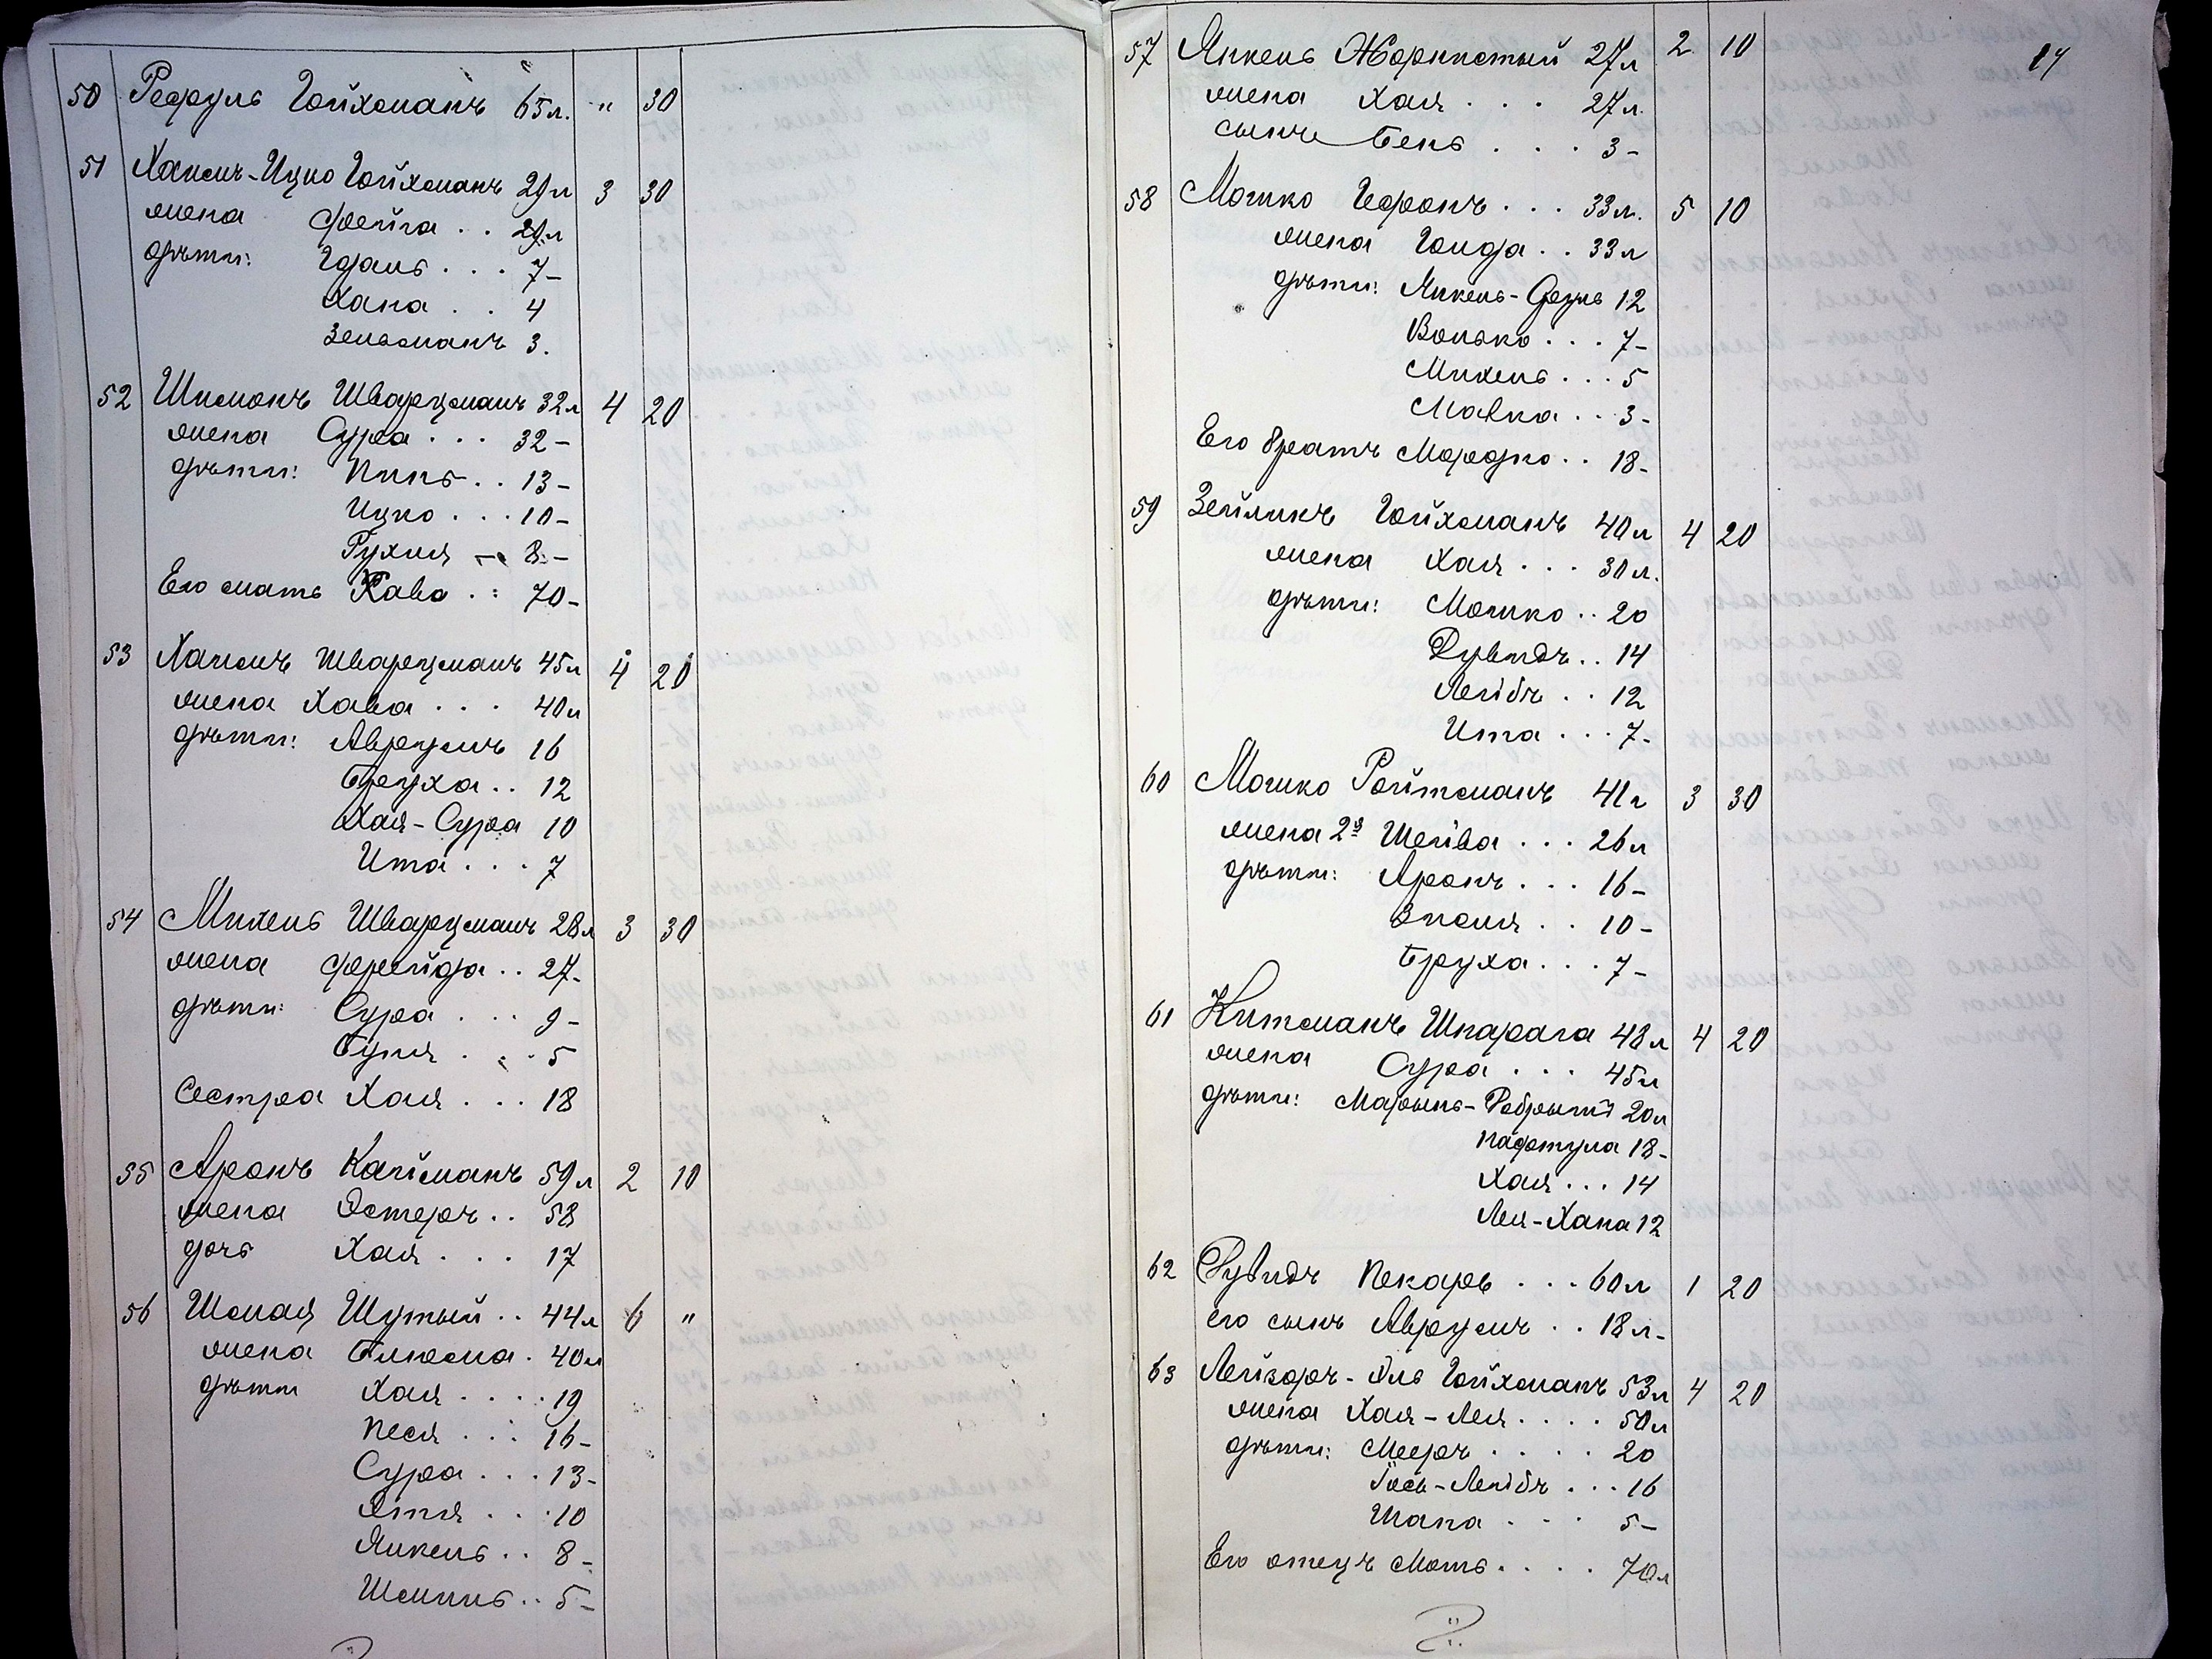 50 Рефуль Гойхманъ 65 л. " 30
51 Хаимъ-Ицко Гойхманъ 29 л 3 30
жена Фейга . . 29 л
дѣти: Гдаль . . . 7 –
Хана . . 4
Зельманъ 3.
52 Шимонъ Шварцманъ 32 л 4 20
жена Сура . . . 32 –
дѣти: Пинь . . 13 –
Ицко . . . 10 –
Рухля – 8. –
Его мать Хава . : 70 –
53 Хаимъ Шварцманъ 45 л 4 20
жена Хава . . . 40 л
дѣти: Аврумъ 16
Бруха . . 12
Хая-Сура 10
Ита . . . 7
54 Михель Шварцманъ 28 л 3 30
жена Фрейда . . 27 –
дѣти: Сура . . . 9 –
Буня . . . 5
Сестра Хая . . . 18
55 Аронъ Кайманъ 59 л 2 10
жена Эстеръ . . 58
дочь Хая . . . 17
56 Шмая Шутый . . 44 л 6 "
жена Блюма . 40 л
дѣти Хая . . . . 19
Песя . . . 16 –
Сура . . . 13 –
Этя . . . 10
Янкель . . 8 –
Шмиль . . 5 –
14
57 Янкель Жорнистый 27 л 2 10
жена Хая . . . 27 л.
сынъ Бень . . . 3 –
58 Мошко Гефонъ . . . 33 л. 5 10
жена Голда . . 33 л
дѣти: Янкель- 12
Волько . . . 7 –
Михель . . . 5
Малка . . 3 –
Его братъ Мордко . . 18 –
59 Зейликъ Гойхманъ 40 л 4 20
жена Хая . . . 30 л.
дѣти: Мошко . . 20
Дувидъ . . 14
Лейбъ . . 12
Ита . . . 7 –
60 Мошко Ройтманъ 41 г 3 30
жена 2я Шейва . . . 26 л
дѣти: Аронъ . . . 16 –
Зисля . . 10 –
Бруха . . . 7 –
61 Китманъ Шпарага 48 л 4 20
жена Сура . . . 45 л
дѣти: 20 л
Нафтула 18 –
Хая . . . 14
Лея-Хана 12
62 Рувидъ Пекарь . . . 60 л 1 20
его сынъ Аврумъ . . 18 л –
63 Лейзоръ-Эль Гойхманъ 53 л 4 20
жена Хая-Лея . . . . 50 л
дѣти: Мееръ . . . . 20
Іось-Лейбъ . . . 16
Шана . . . 5 –
Его отецъ Моть . . . . 70 л